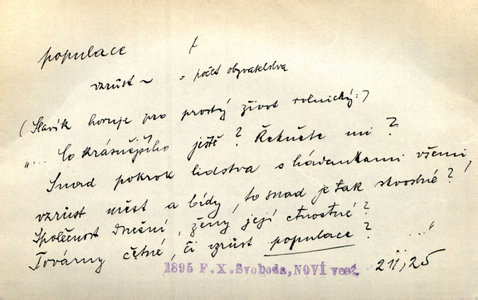 populace f
vzrůst ~ = počet obyvatelstva
(Slavík horuje pro prostý život rolnický:)
"... Co krásnějšího ještě? Řekněte mi?
Snad pokrok lidstva s hádankami všemi,
vzrůst měst a bídy, to snad je tak skvostné?
Společnost dnešní, ženy její ctnostné?
Továrny četné, či vzrůst populace? ..."
1895 F.X.Svoboda, NOVÍ vesg. 211,25